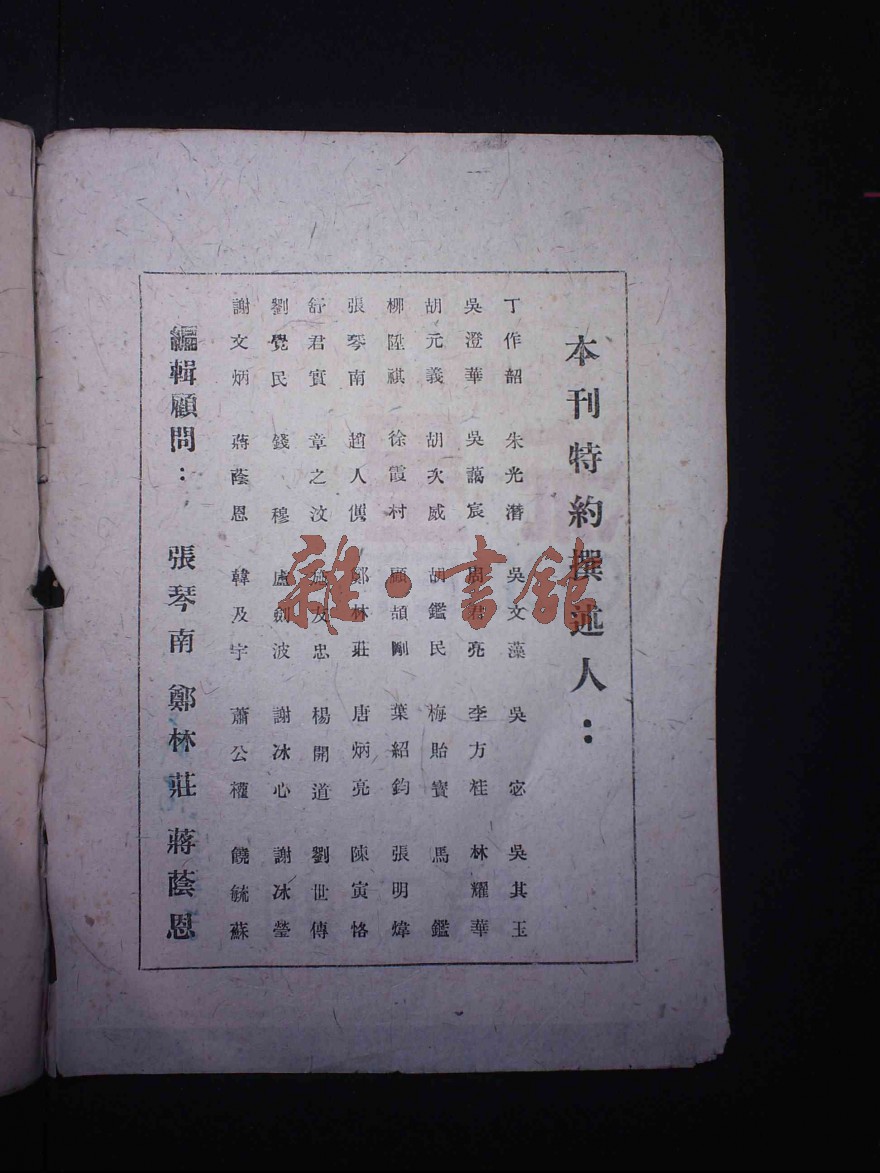 本刊特約撰述人：
丁作韶 朱光潛 吳文藻 吳宓 吳其玉
吳澄華 吳藹宸 周君亮 李方桂 林耀華
胡元義 胡次威 胡鑑民 梅貽寶 馬鑑
柳陞祺 徐霞村 顧頡剛 葉紹鈞 張明煒
張琴南 趙人儁 鄭林莊 唐炳亮 陳寅恪
舒君實 章之汶 友忠 楊開道 劉世傳
劉覺民 錢穆 盧劍波 謝冰心 謝冰瑩
謝文炳 蔣蔭恩 韓及宇 蕭公權 饒毓蘇
編輯顧問： 張琴南 鄭林莊 蔣蔭恩
雜·書館